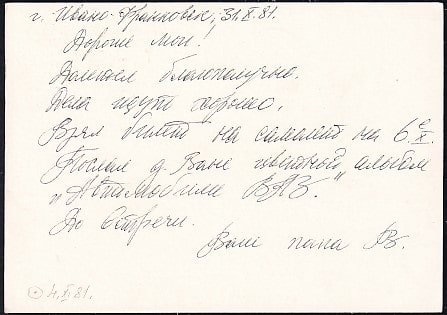 г. Ивано-Франковск, 31.X.81.
Дорогие мои!
Долетел благополучно.
Дела идут хорошо.
Взял билет на самолёт на 6
Послал д. Ване цветной альбом
"Автомобили ВАЗ."
До встречи.
Ваш папа В.
4.XI.81.